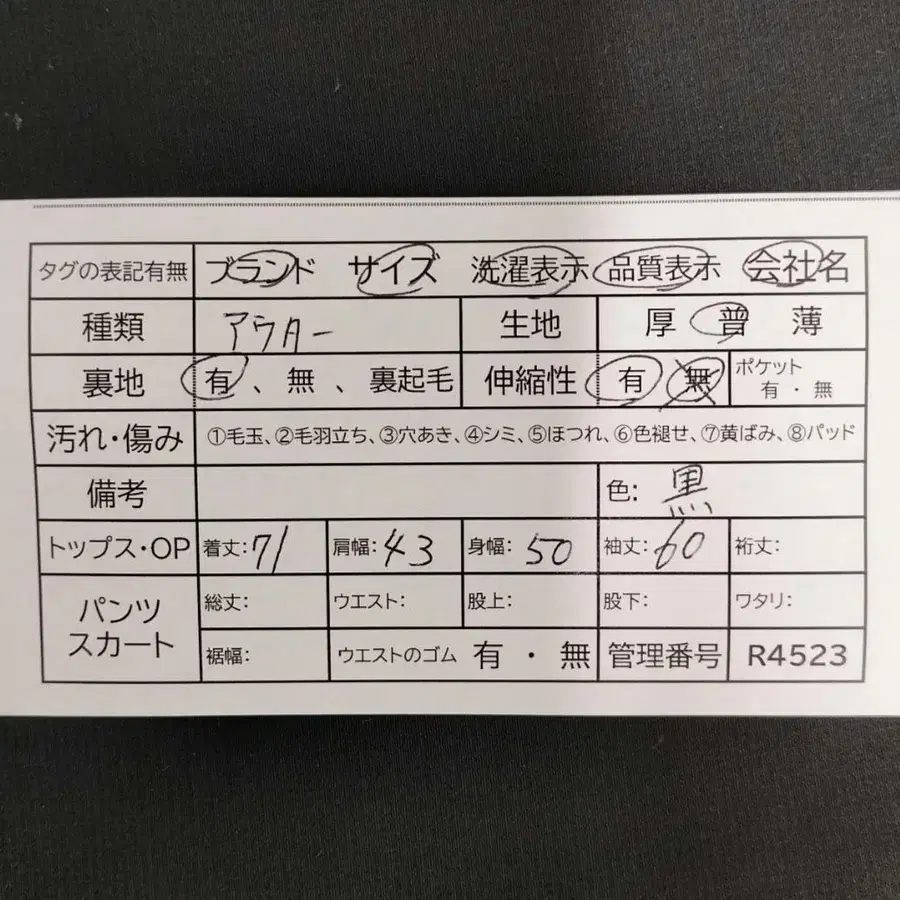 タグの表記有無 ブランド サイズ 洗濯表示 品質表示 会社名
種類 アウター 生地 厚 普 薄
裏地 有、無、裏起毛 伸縮性 有 無 ポケット 有・無
汚れ・傷み ①毛玉、②毛羽立ち、③穴あき、④シミ、⑤ほつれ、⑥色褪せ、⑦黄ばみ、⑧パッド
備考 色: 黒
トップス・OP 着丈: 71 肩幅: 43 身幅: 50 袖丈: 60 裄丈:
パンツ スカート 総丈: ウエスト: 股上: 股下: ワタリ:
裾幅: ウエストのゴム 有・無 管理番号 R4523